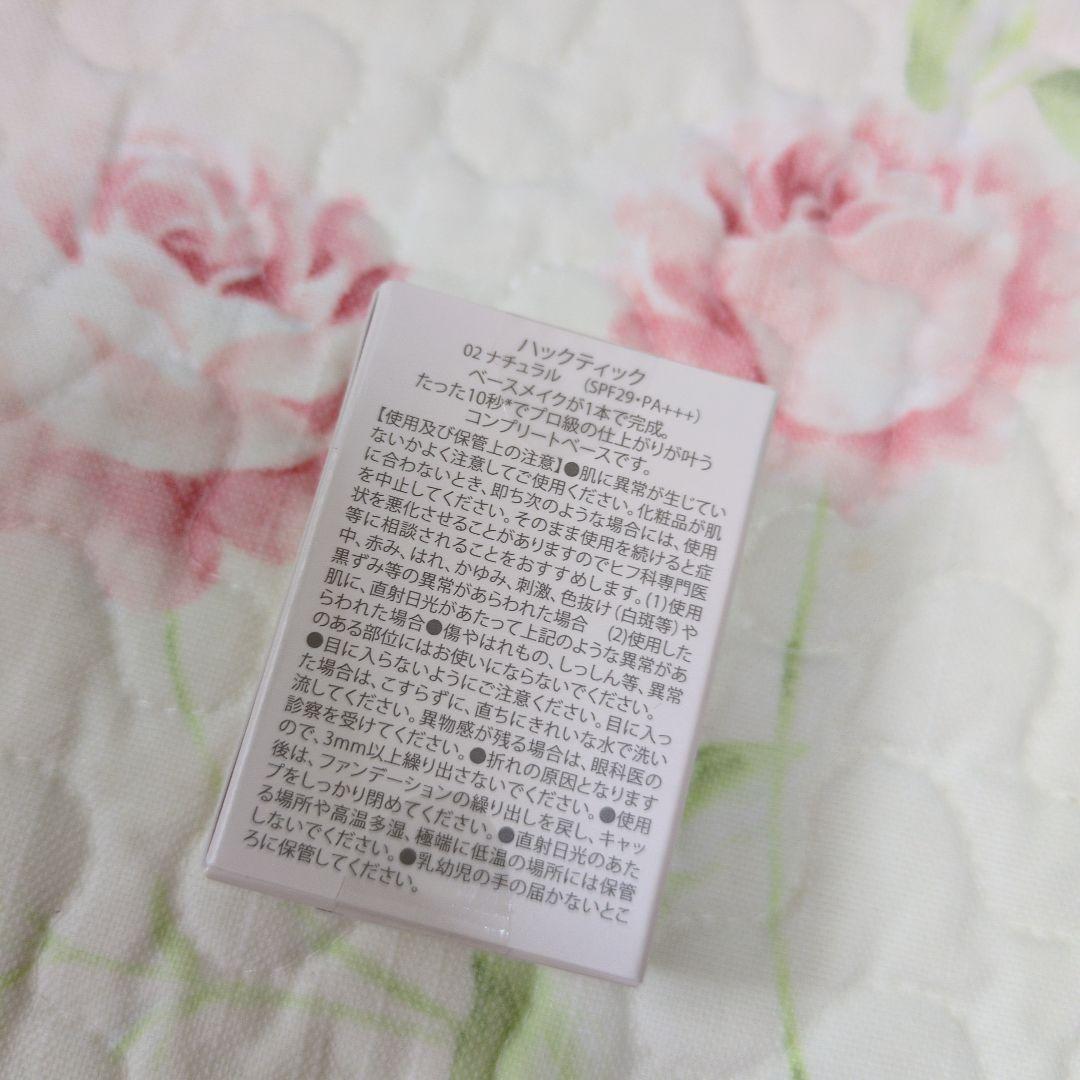 ハックティック
02 ナチュラル (SPF29・PA+++)
ベースメイクが1本で完成。
たった10秒*でプロ級の仕上がりが叶う
コンプリートベースです。
【使用及び保管上の注意】●肌に異常が生じてい
ないかよく注意してご使用ください。化粧品が肌
に合わないとき、即ち次のような場合には、使用
を中止してください。そのまま使用を続けると症
状を悪化させることがありますのでヒフ科専門医
等に相談されることをおすすめします。(1)使用
中、赤み、はれ、かゆみ、刺激、色抜け(白斑等)や
黒ずみ等の異常があらわれた場合 (2)使用した
肌に、直射日光があたって上記のような異常があ
らわれた場合●傷やはれもの、しっしん等、異常
のある部位にはお使いにならないでください。
●目に入らないようにご注意ください。目に入っ
た場合は、こすらずに、直ちにきれいな水で洗い
流してください。異物感が残る場合は、眼科医の
診察を受けてください。●折れの原因となります
ので、3mm以上繰り出さないでください。●使用
後は、ファンデーションの繰り出しを戻し、キャッ
プをしっかり閉めてください。●直射日光のあた
る場所や高温多湿、極端に低温の場所には保管
しないでください。●乳幼児の手の届かないとこ
ろに保管してください。